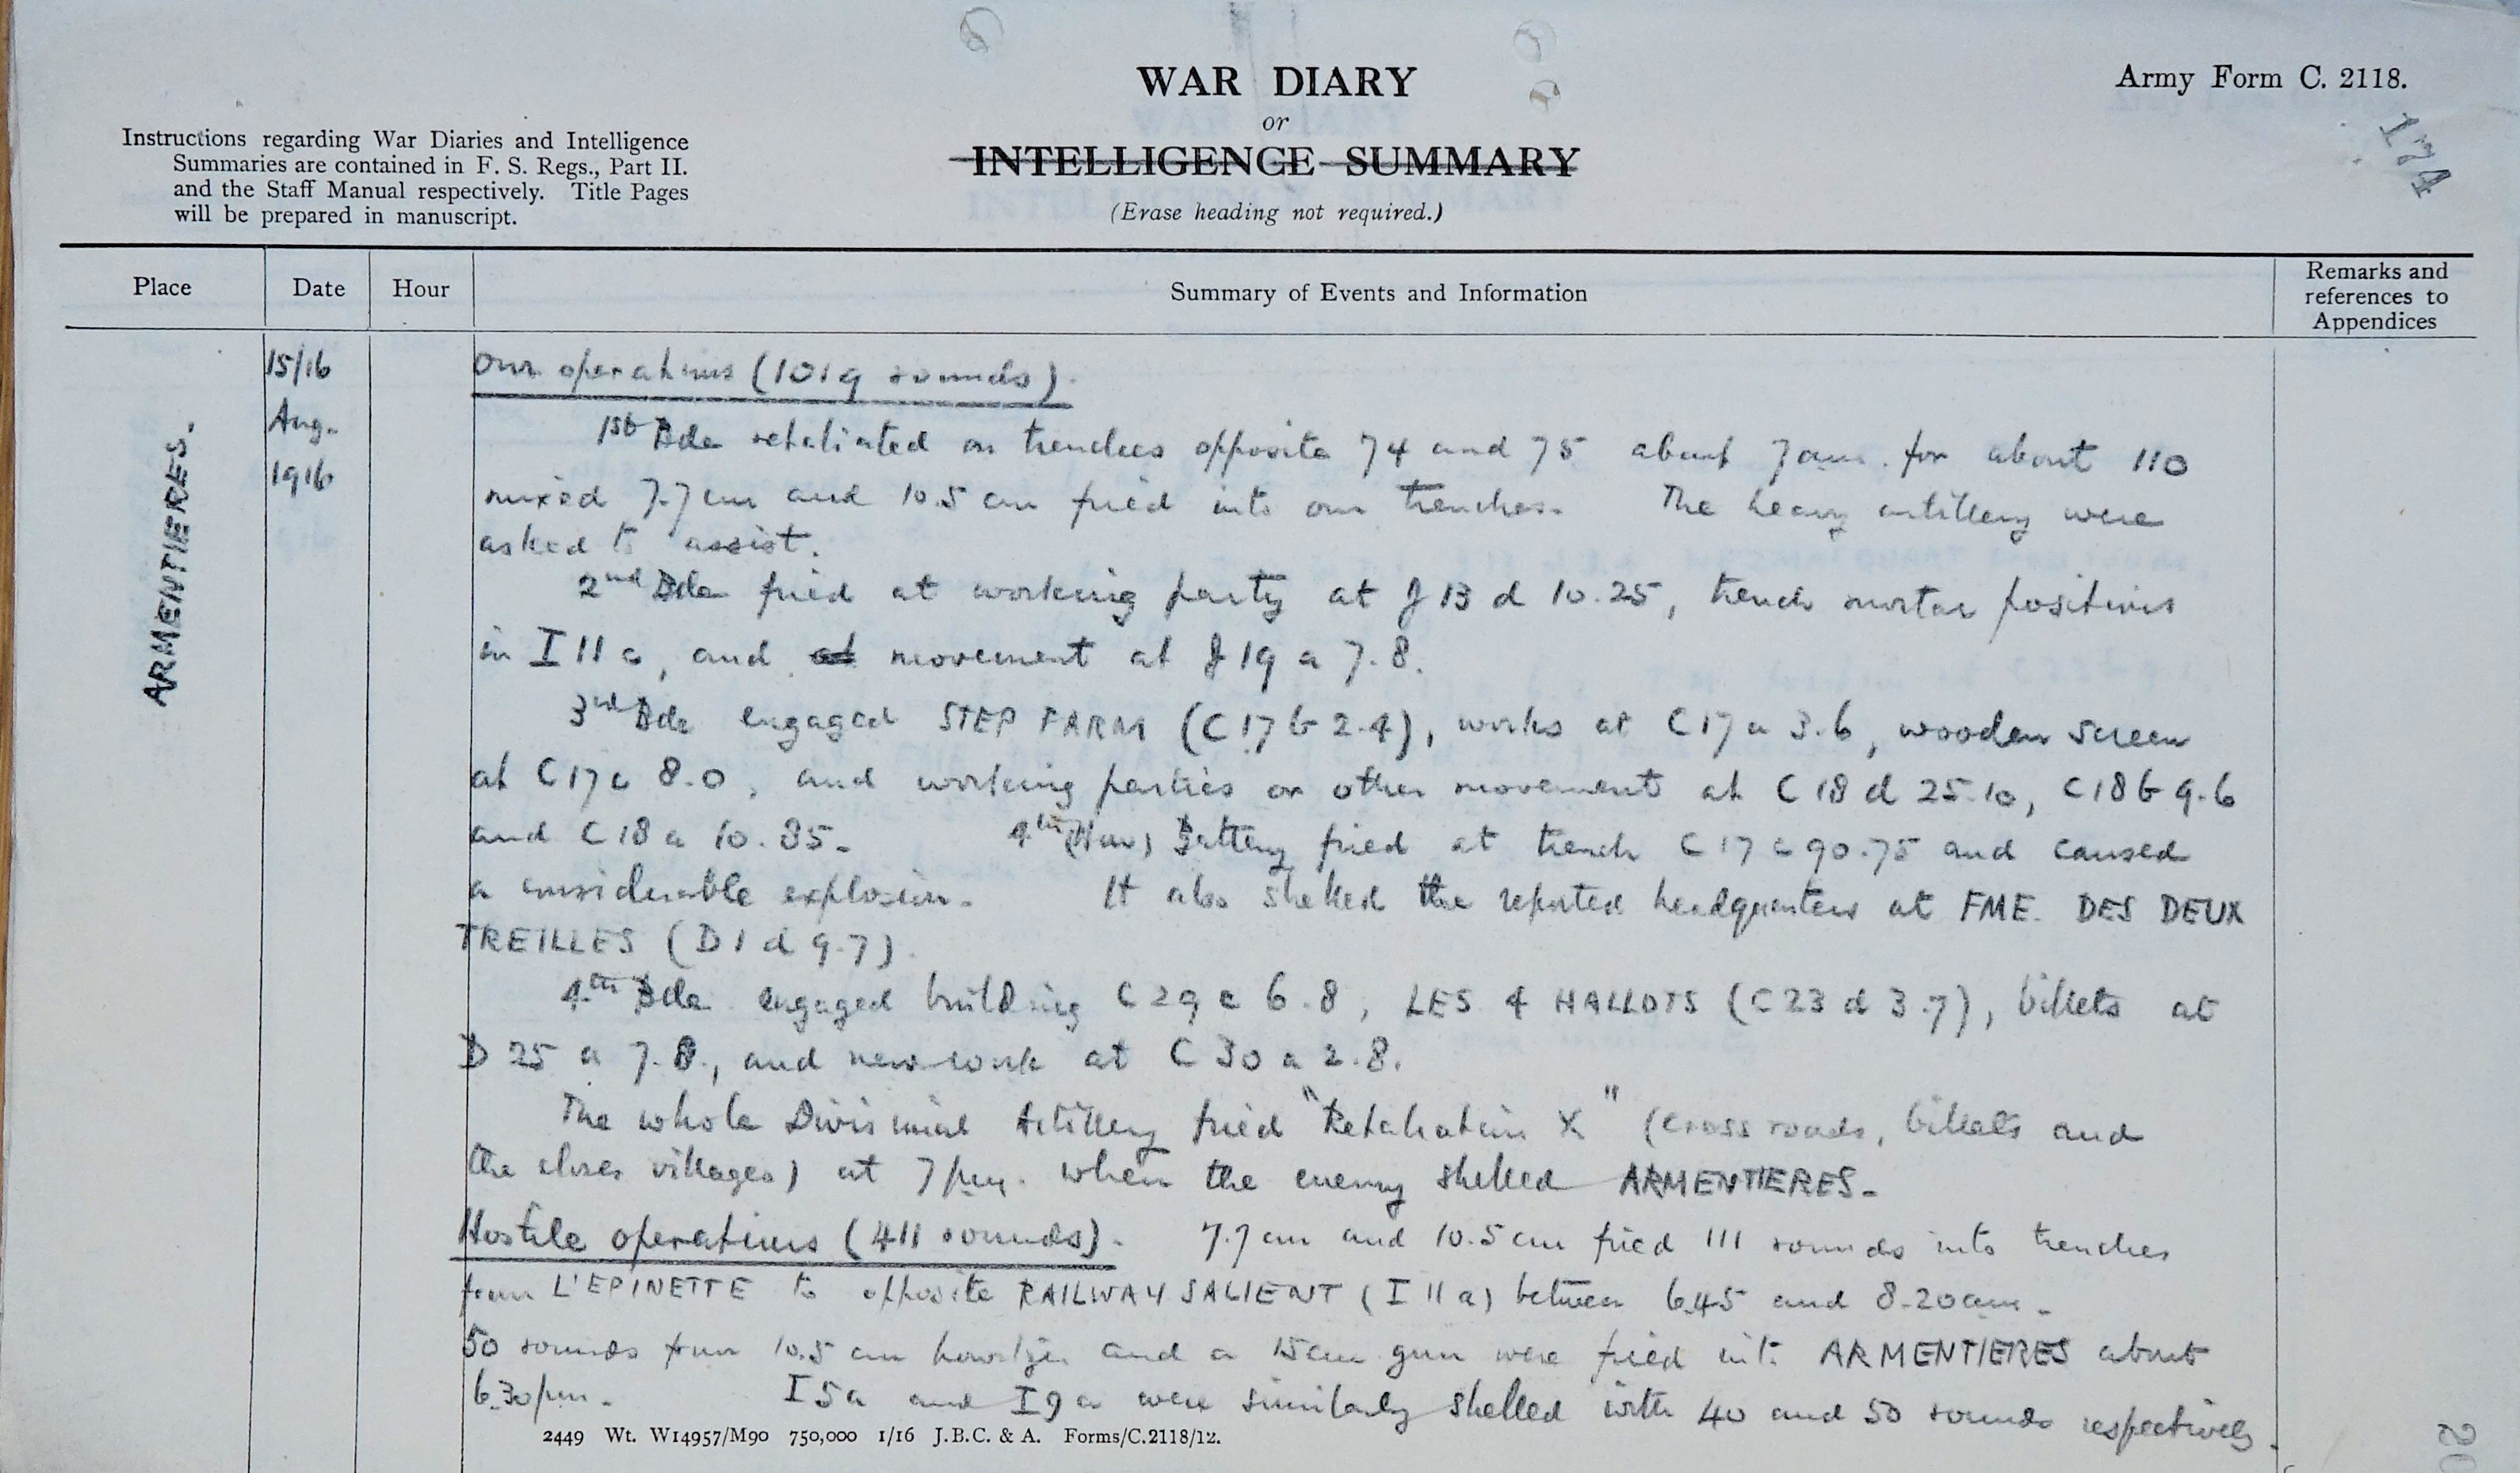 WAR DIARY
Army Form C. 2118.
or
INTELLIGENCE SUMMARY
(Erase heading not required.)
174
Instructions regarding War Diaries and Intelligence
Summaries are contained in F. S. Regs., Part II.
and the Staff Manual respectively. Title Pages
will be prepared in manuscript.
Place
Date
Hour
Summary of Events and Information
Remarks and
references to
Appendices
ARMENTIERES.
15/16
Aug.
1916
Our operations (1019 rounds).
1st Bde retaliated on trenches opposite 74 and 75 about 7am. for about 110
mixed 7.7cm and 10.5 cm fired into our trenches. The heavy artillery were
asked to assist.
2nd Bde fired at working party at J 13 d 10.25, trench mortar positions
in I 11 c, and at movement at J 19 a 7.8.
3rd Bde engaged STEP FARM (C 17 b 2.4), works at C 17 a 3.6, wooden screen
at C 17 c 8.0, and working parties or other movement at C 18 d 25.10, C 18 b 9.6
and C 18 a 10.85. 4th (How) Battery fired at trench C 17 c 90.75 and caused
a considerable explosion. It also shelled the reported headquarters at FME. DES DEUX
TREILLES (D 1 d 9.7).
4th Bde engaged building C 29 c 6.8, LES 4 HALLOTS (C 23 d 3.7), billets at
D 25 a 7.8., and new work at C 30 a 2.8.
The whole Divisional Artillery fired "Retaliation X" (cross roads, billets and
the closer villages) at 7pm. when the enemy shelled ARMENTIERES.
Hostile operations (411 rounds). 7.7cm and 10.5cm fired 111 rounds into trenches
from L'EPINETTE to opposite RAILWAY SALIENT (I 11 a) between 6.45 and 8.20am.
50 rounds from 10.5 cm howitzer and a 15cm gun were fired into ARMENTIERES about
6.30pm. I 5a and I 9 a were similarly shelled with 40 and 50 rounds respectively.
2449 Wt. W14957/M90 750,000 1/16 J.B.C. & A. Forms/C.2118/12.